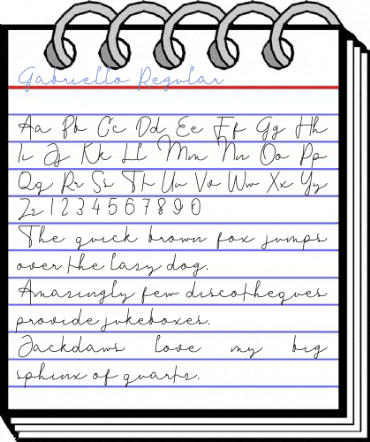 Gabriello Regular
Aa Bb Cc Dd Ee Ff Gg Hh
Ii Jj Kk Ll Mm Nn Oo Pp
Qq Rr Ss Tt Uu Vv Ww Xx Yy
Zz 1 2 3 4 5 6 7 8 9 0
The quick brown fox jumps
over the lazy dog.
Amazingly few discotheques
provide jukeboxes.
Jackdaws love my big
sphinx of quartz.